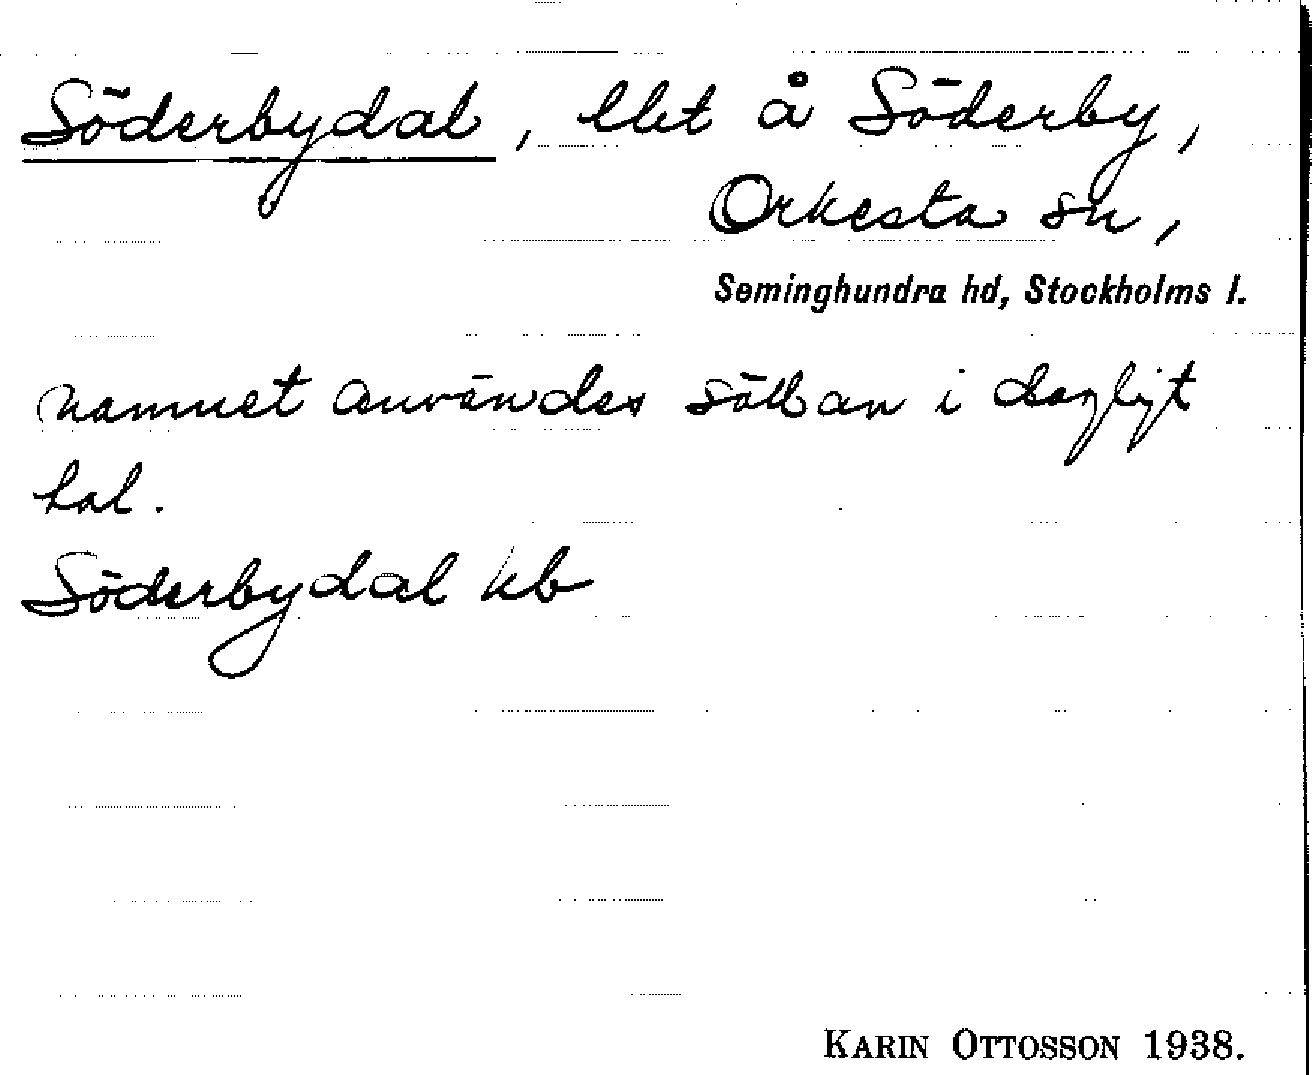 Söderbydal, llet å Söderby,
Orkesta sn,
Seminghundra hd, Stockholms l.
namnet användes sällan i dagligt
tal.
Söderbydal kb
KARIN OTTOSSON 1938.